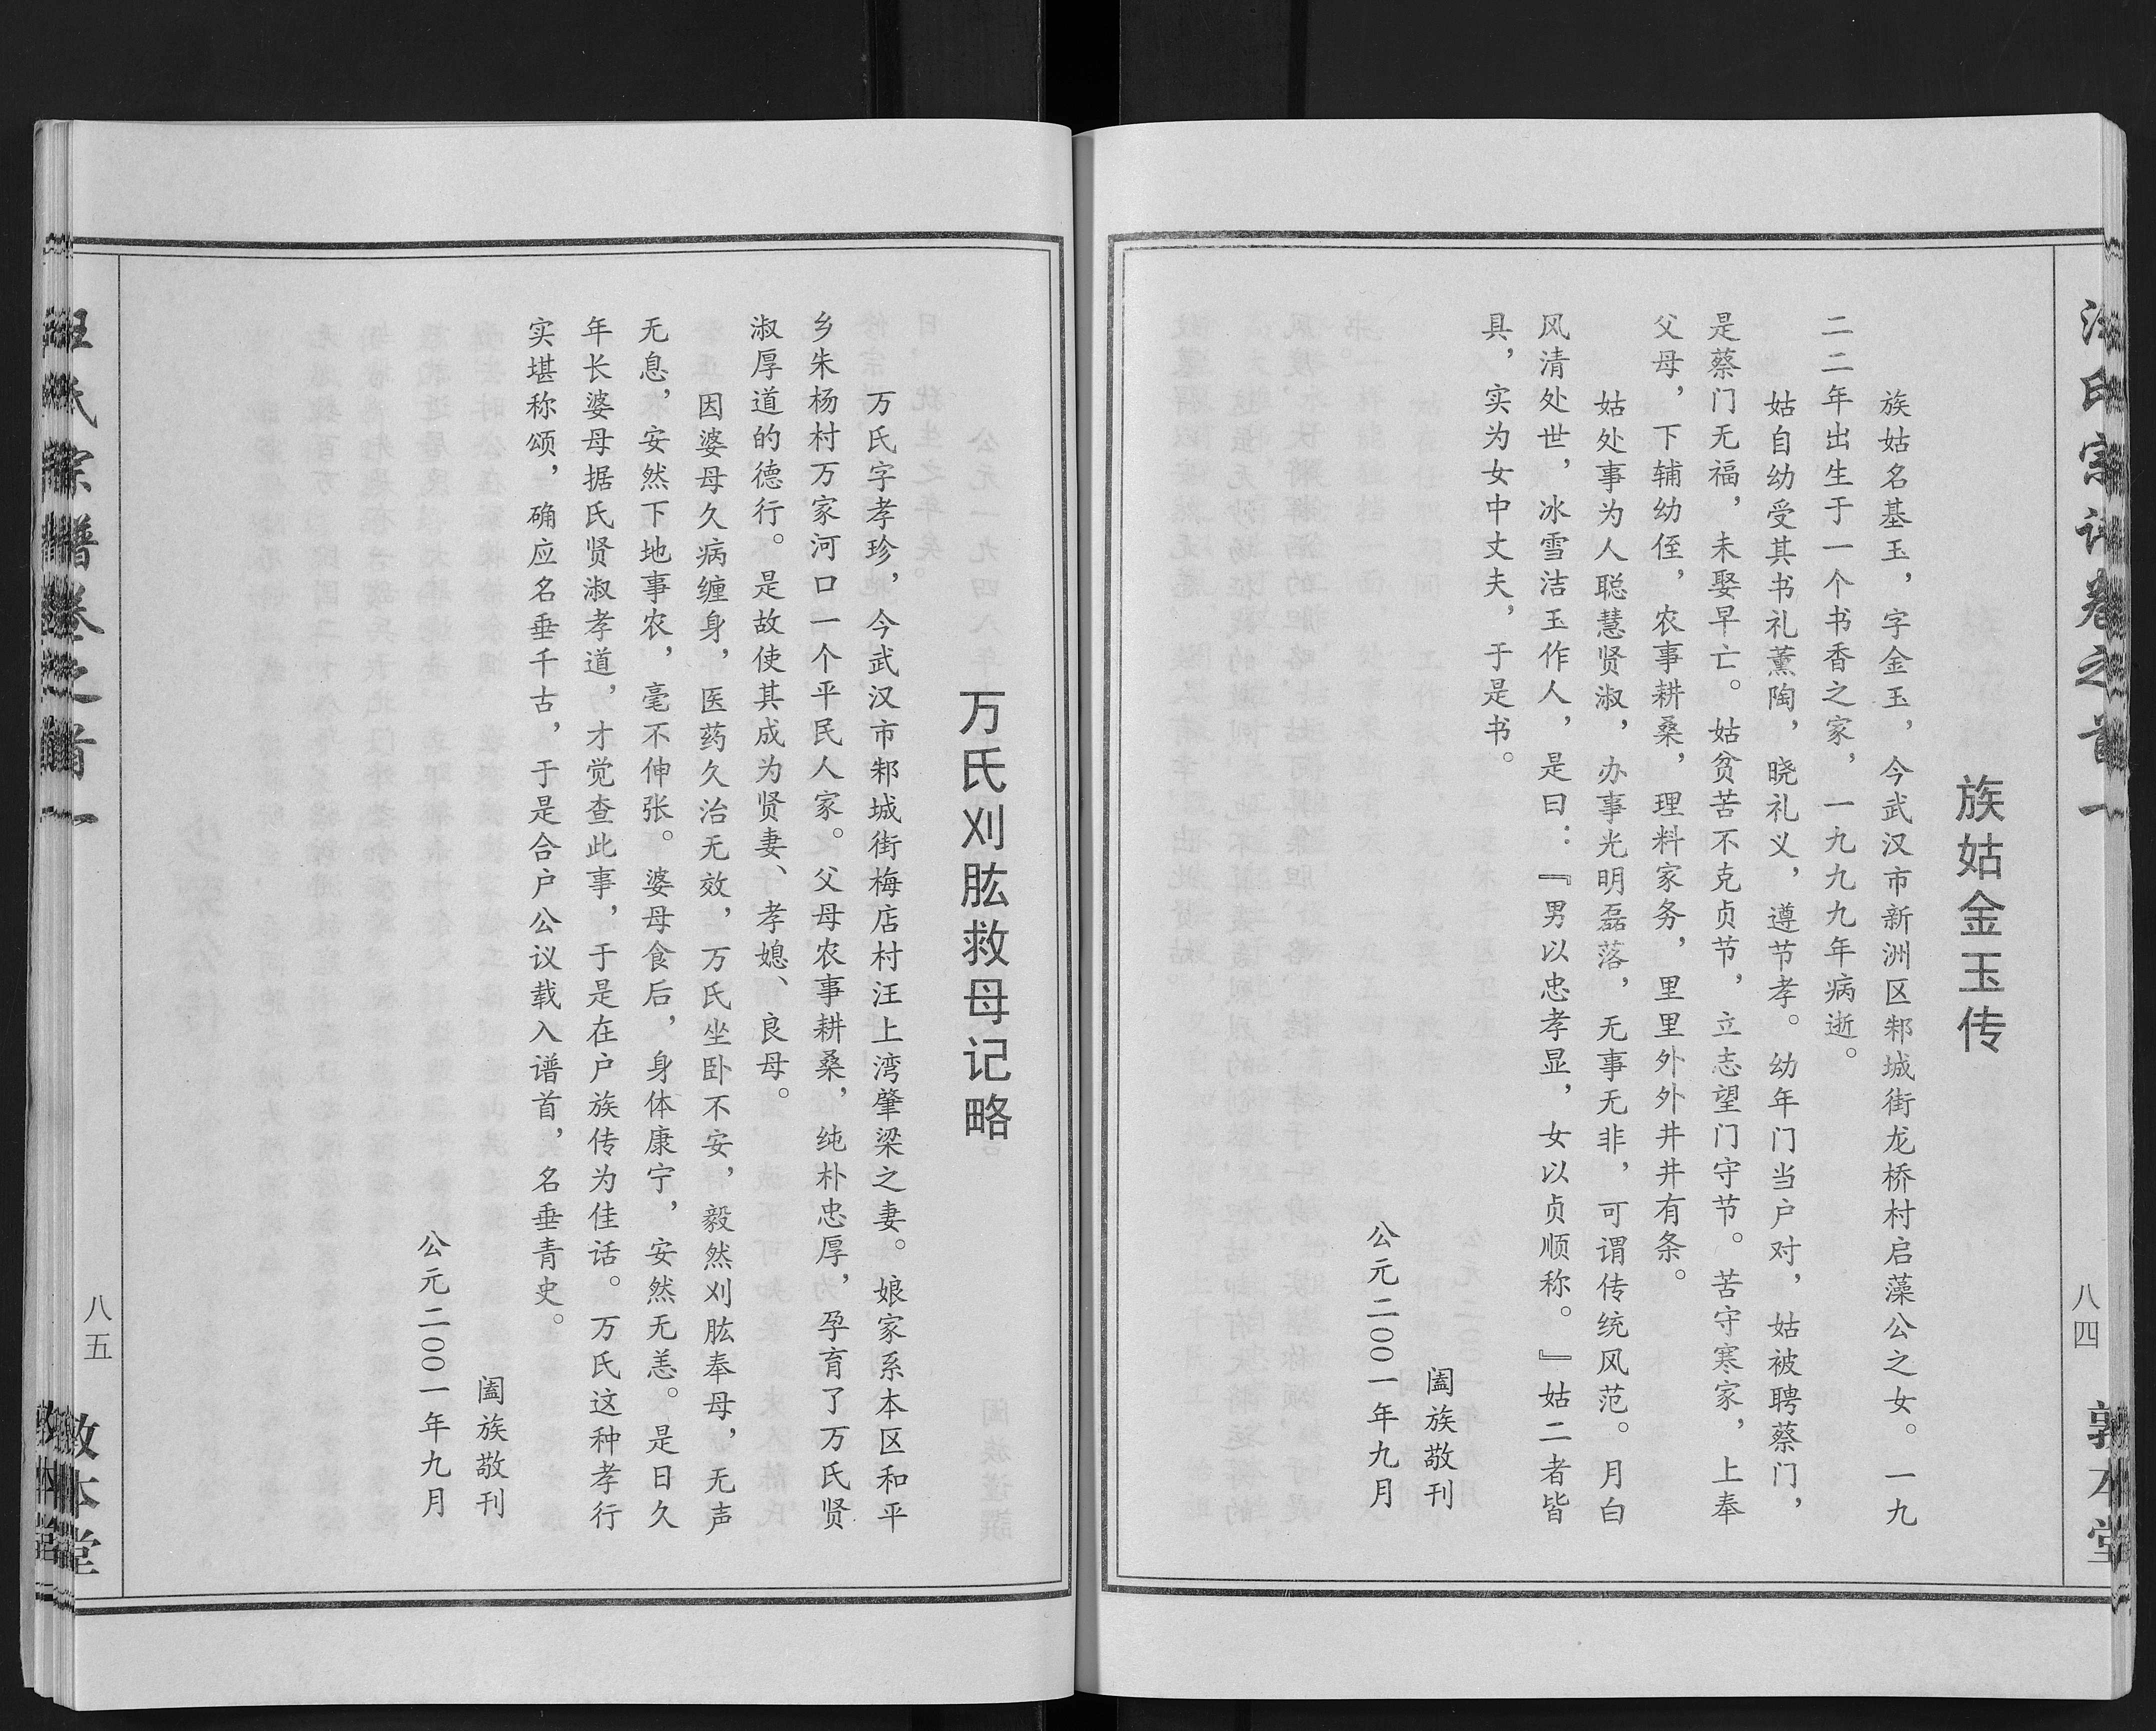 汪氏宗谱卷之首一
八四
敦本堂
族姑金玉传
族姑名基玉，字金玉，今武汉市新洲区邾城街龙桥村启藻公之女。一九
二二年出生于一个书香之家，一九九九年病逝。
姑自幼受其书礼薰陶，晓礼义，遵节孝。幼年门当户对，姑被聘蔡门，
是蔡门无福，未娶早亡。姑贫苦不克贞节，立志望门守节。苦守寒家，上奉
父母，下辅幼侄，农事耕桑，理料家务，里里外外井井有条。
姑处事为人聪慧贤淑，办事光明磊落，无事无非，可谓传统风范。月白
风清处世，冰雪洁玉作人，是曰：『男以忠孝显，女以贞顺称。』姑二者皆
具，实为女中丈夫，于是书。
阖族敬刊
公元二〇〇一年九月
万氏刈肱救母记略
万氏字孝珍，今武汉市邾城街梅店村汪上湾肇梁之妻。娘家系本区和平
乡朱杨村万家河口一个平民人家。父母农事耕桑，纯朴忠厚，孕育了万氏贤
淑厚道的德行。是故使其成为贤妻、孝媳、良母。
因婆母久病缠身，医药久治无效，万氏坐卧不安，毅然刈肱奉母，无声
无息，安然下地事农，毫不伸张。婆母食后，身体康宁，安然无恙。是日久
年长婆母据氏贤淑孝道，才觉查此事，于是在户族传为佳话。万氏这种孝行
实堪称颂，确应名垂千古，于是合户公议载入谱首，名垂青史。
阖族敬刊
公元二〇〇一年九月
汪氏宗谱卷之首一
八五
敦本堂